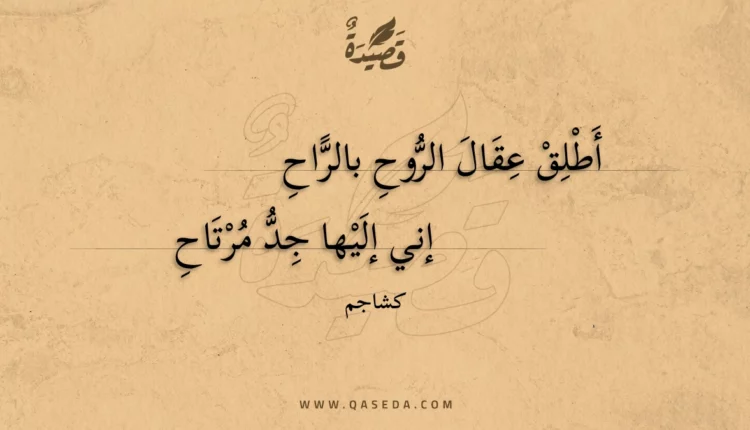 قَصِيدَةٌ
أَطْلِقْ عِقَالَ الرُّوحِ بالرَّاحِ
إني إلَيْها جِدُّ مُرْتَاحِ
كشاجم
WWW.QASEDA.COM